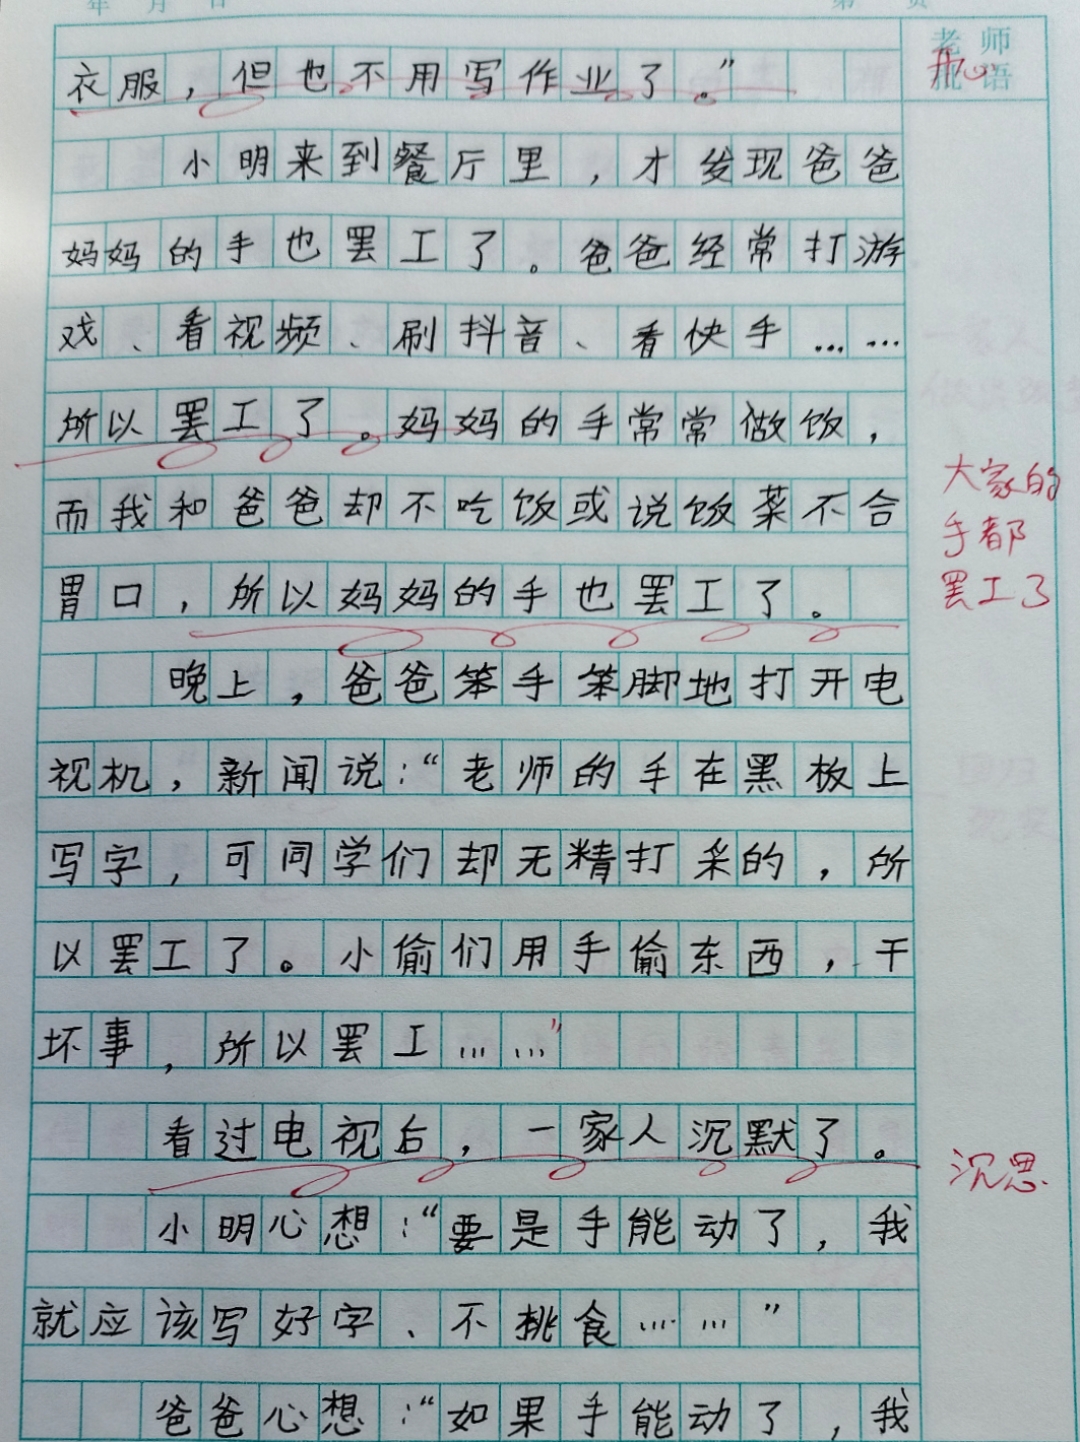 年 月 日 第 页
老师
批语
衣服，但也不用写作业了。”
开心
小明来到餐厅里，才发现爸爸
妈妈的手也罢工了。爸爸经常打游
戏、看视频、刷抖音、看快手……
所以罢工了。妈妈的手常常做饭，
而我和爸爸却不吃饭或说饭菜不合
大家的
手都
罢工了
胃口，所以妈妈的手也罢工了。
晚上，爸爸笨手笨脚地打开电
视机，新闻说：“老师的手在黑板上
写字，可同学们却无精打采的，所
以罢工了。小偷们用手偷东西，干
坏事，所以罢工……”
看过电视后，一家人沉默了。
沉思
小明心想：“要是手能动了，我
就应该写好字、不挑食……”
爸爸心想：“如果手能动了，我